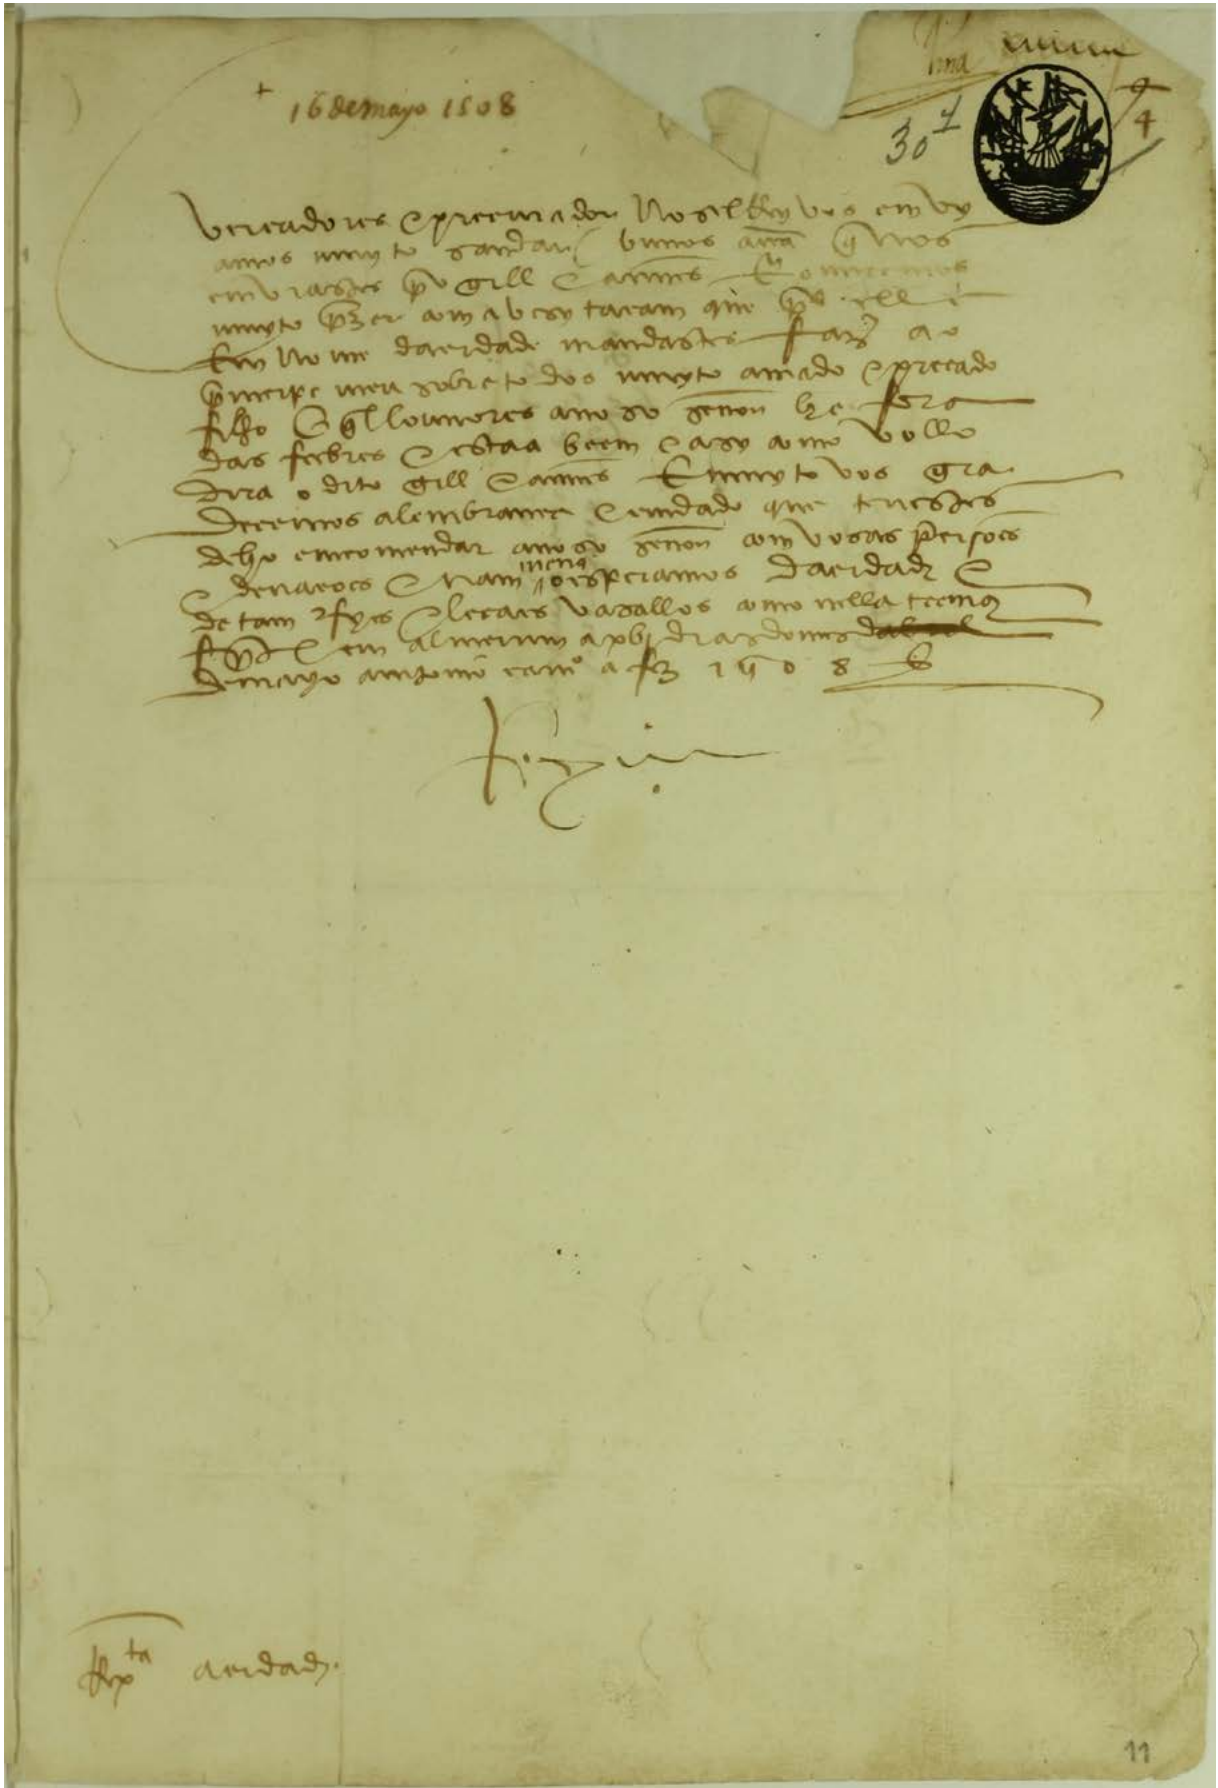 16 de mayo 1508
30 1
4
vereadores e precurador Nos el Rey vos emvy
amos muyto saudar / vimos a carta q̃ nos
emviastes per gill eannes E Recebemos
muyto prazer com a vesytacam que per elle
Em nome da cidade mandastes fazer ao
principe meu sobre todos muyto amado e prezado
filho O qual louvores a noso senor he fora
das febres e estaa beem e asy como vollo
dira o dito gill eannes E muyto vos gra
decemos a lembrança e cuidado que tevestes
de ho emcomendar a noso senor com vosas
e devações E nam menos esperamos da cidade E
de tam e leaes vasallos como nella teemos
em almeirim a xbj dias do mes
de mayo antonio carnº a fez 1508
Rey
Rpta a cidade.
11